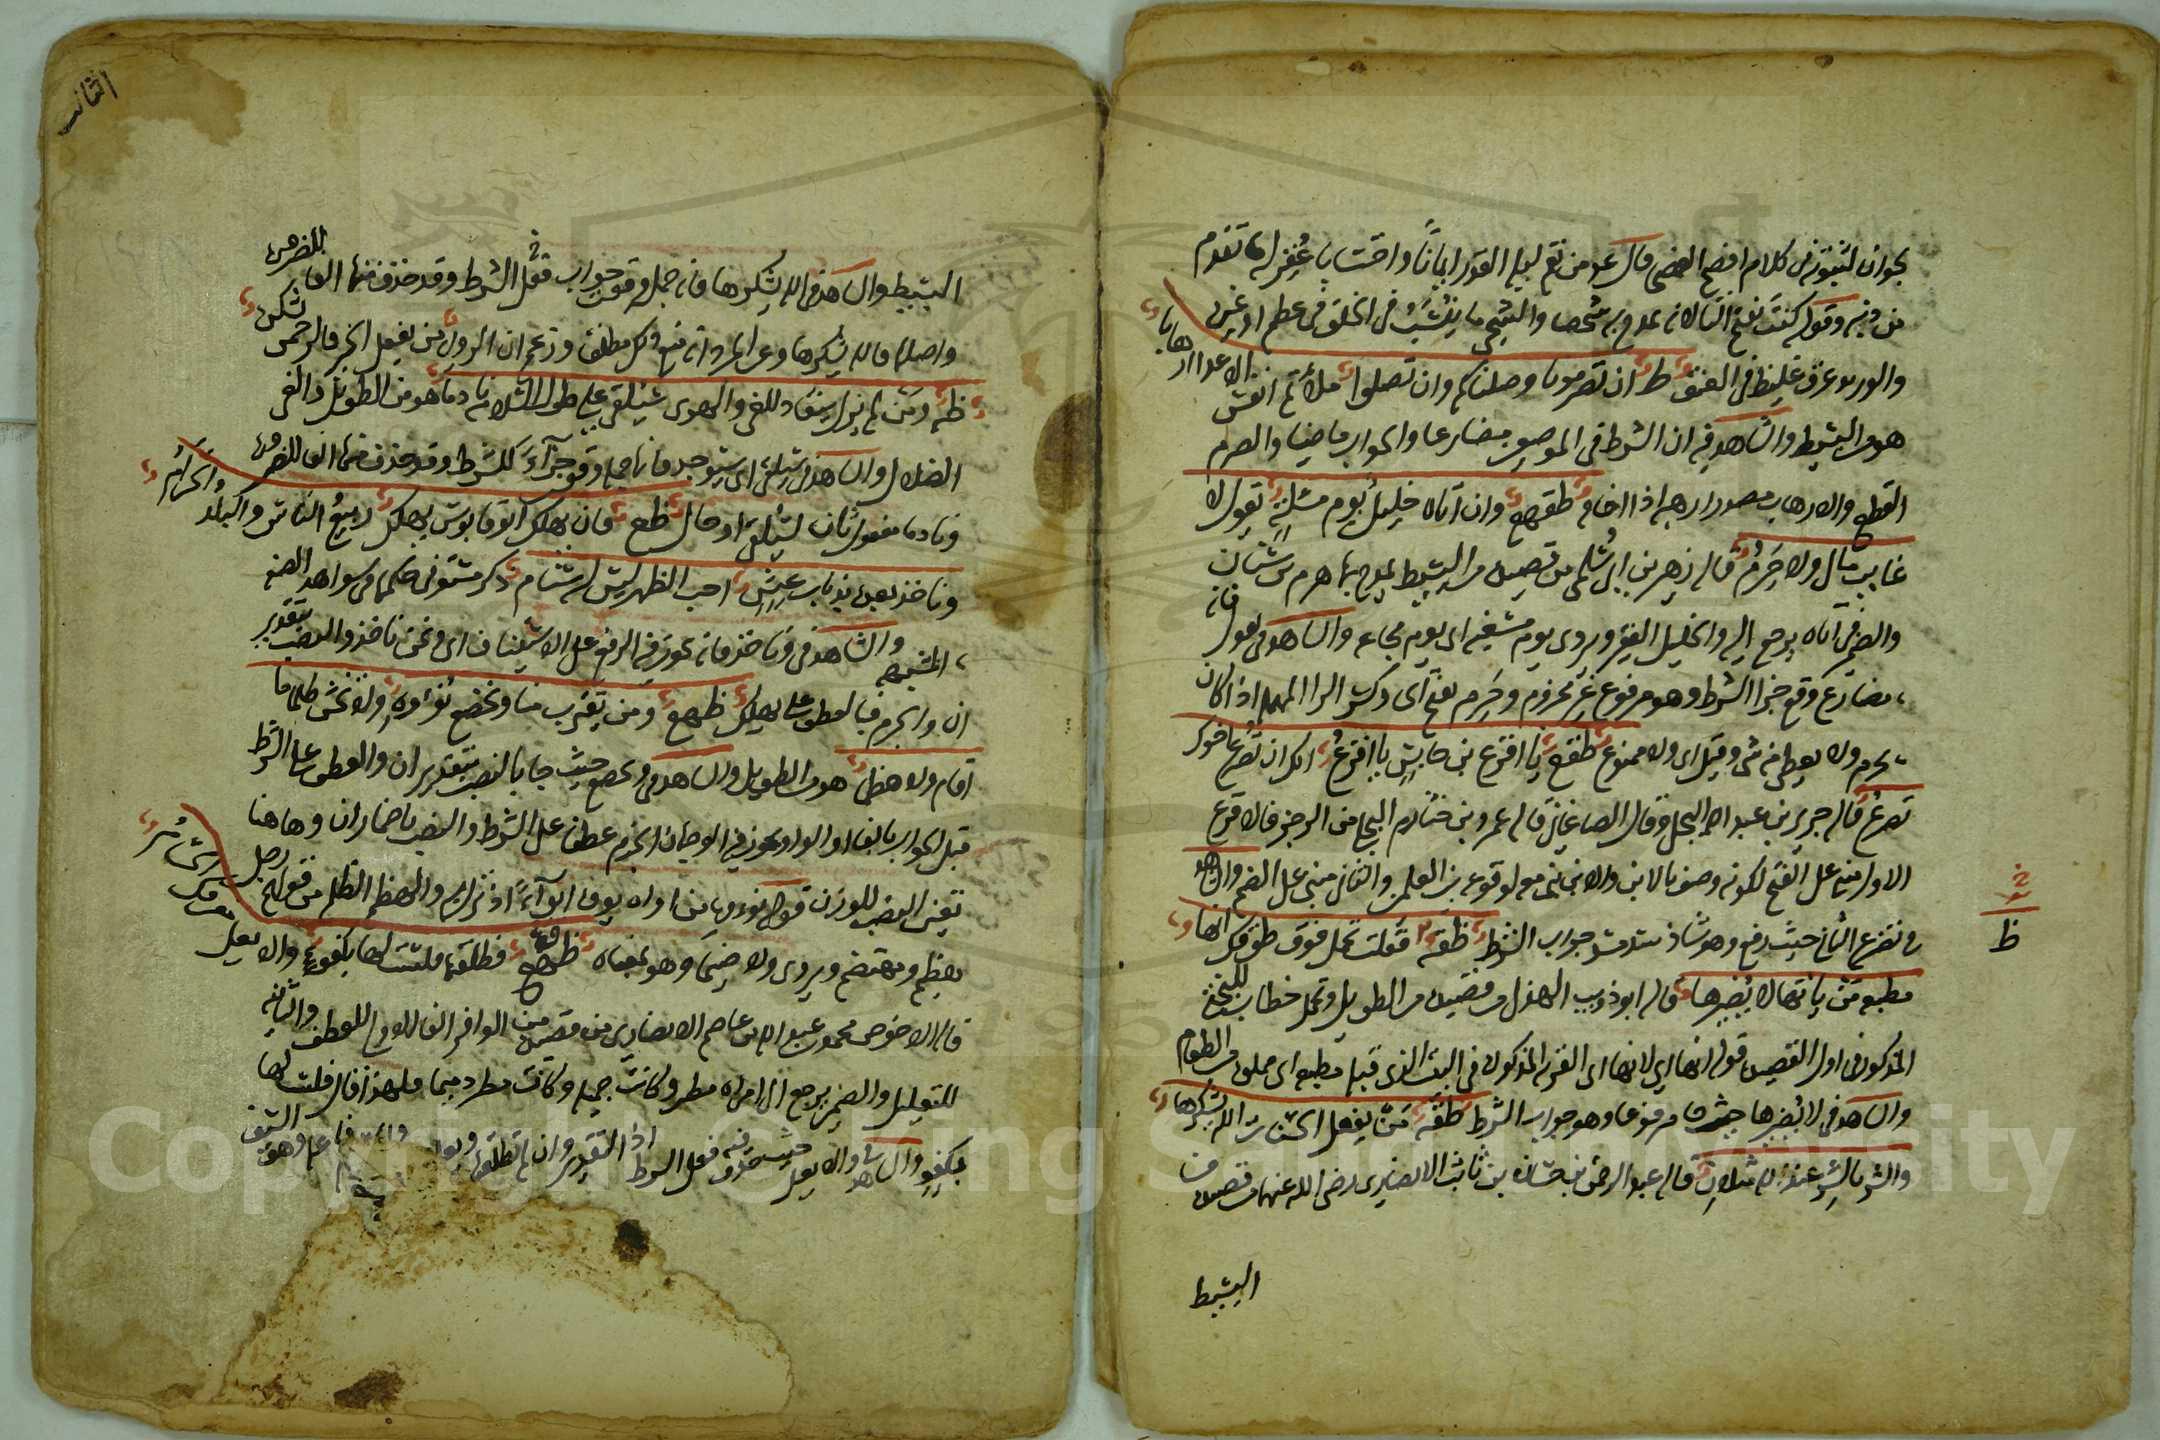 بجوازه لثبوته فى كلام افصح الفصحا قال عم من يقم ليلة القدر ايمانا واحتسابا غفر له ما تقدم
من ذنبه وقوله كنت بفتح التا لانه يمدح به شخصا والشجى ما ينشب فى الحلق من عظم او غيره
والوريد عرق غليظ فى العنق ط ان تصرمونا وصلناكم وان تصلوا ملأتم انفس الاعداء ارهابا
هو من البسيط والشاهد فيه ان الشرط فى الموضعين مضارعا والجواب ماضيا والصرم
القطع والارهاب مصدر ارهبه اذا اخافه طقهع وان اتاه خليل يوم مسئلة يقول لا
غايب مالى ولا حرم قاله زهير بن ابى سلمى من قصيدة من البسيط يمدح بها هرم بن سنان
والضمير فى اتاه يرجع اليه والخليل الفقير ويروى يوم مسغبة اى يوم مجاعة والشاهد فى يقول فانه
مضارع وقع جزا الشرط وهو مرفوع غير مجزوم وحرم بفتح الحا وكسر الرا المهملة اذا كان
يحرم ولا يعطى منه شى وقيل اى ولا ممنوع طقع يا اقرع بن حابس يا اقرع انك ان تصرع اخوك
تصرع قاله جرير بن عبد الله البجلى وقال الصاغانى قاله عمرو بن خثارم البجلى من الرجز فالاقرع
الاول مبنى على الفتح لكونه وصف بالابن والابن بنى معه لوقوعه بين العلمين والثانى مبنى على الضم والشاهد
فى تصرع الثانى حيث رفع وهو شاذ سد مسد جواب الشرط ظقه فقلت تحمل فوق طوقك انها
مطبعة من ياتها لا يضيرها قاله ابو ذويب الهذلى من قصيدة من الطويل وتحمل خطاب للبختى
المذكور فى اول القصيدة قوله انها اى لانها اى القرية المذكورة فى البيت الذى قبله مطبعة اى مملوة من الطعام
والشاهد فى لا يضيرها حيث جا مرفوعا وهو جواب الشرط طقه من يفعل الحسنات الله يشكرها
والشر بالشر عند الله مثلان قاله عبد الرحمن بن حسان بن ثابت الانصارى رضى الله عنهما من قصيدة من
البسيط
ظ
الثانى
البسيط والشاهد فى الله يشكرها فانه جملة وقعت جواب فعل الشرط وقد حذف منها الفا للضرورة
واصله فالله يشكرها وعن المبرد انه منع ذلك مطلقا وزعم ان الرواية من يفعل الخير فالرحمن يشكره
ظه ومن لم يزل ينقاد للغى والهوى سيلقى على طول السلامة نادما هو من الطويل والغى
الضلال والشاهد فى سيلقى اى سيوجد فانها جملة وقعت جزآء للشرط وقد حذف منها الفا للضرورة
ونادما مفعول ثان لسيلقى او حال ظع فان يهلك ابو قابوس يهلك ربيع الناس والبلد الحرام
وناخذ بعده بذناب عيش اجب الظهر ليس له سنام ذكر مستوفى حكما فى شواهد الصفة
المشبهة والشاهد فى وناخذ فانه يجوز فيه الرفع على الاستيناف اى ونحن ناخذ والنصب بتقدير
ان والجزم بالعطف على يهلك ظهع ومن يقترب منا ويخضع نؤوه ولا يخش ظلما ما
اقام ولا هضما هو من الطويل والشاهد فى ويخضع حيث جا بالنصب بتقدير ان والعطف على الشرط
قبل الجواب بالفا او الواو يجوز فيه الوجهان الجزم عطفا على الشرط والنصب باضمار ان وهاهنا
تعين النصب للوزن قوله نؤوه من اواه يويه ايوآء اذا انزله به والهضم الظلم من قولهم رجل
هضيم ومهتضم ويروى ولا ضيما وهو بمعناه ظقهع فطلقها فلست لها بكفوء والا يعل مفرقك الحسام
قاله الاحوص محمد بن عبد الله بن عاصم الانصارى من قصيدة من الوافر الفا الاولى للعطف والثانية
للتعليل والضمير يرجع الى امراة مطر وكانت جميلة وكانت مطر دميما فلهذا قال فلست لها
بكفوء والشاهد فى والا يعل حيث حذف فيه فعل الشرط اذ التقدير وان لم تطلقها